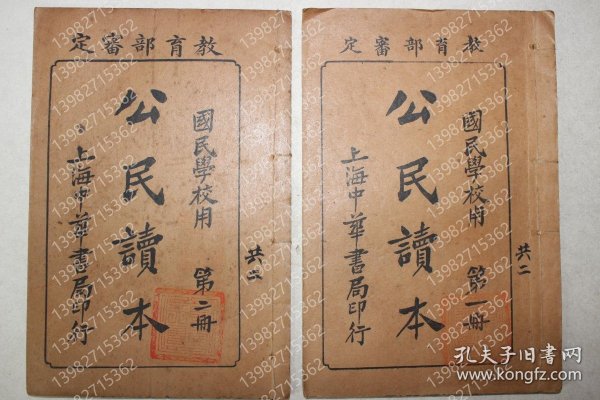 教育部審定
國民學校用 第二冊
公民讀本
上海中華書局印行
共二
教育部審定
國民學校用 第一冊
公民讀本
上海中華書局印行
共二
13982715362
孔夫子旧书网
www.kongfz.com